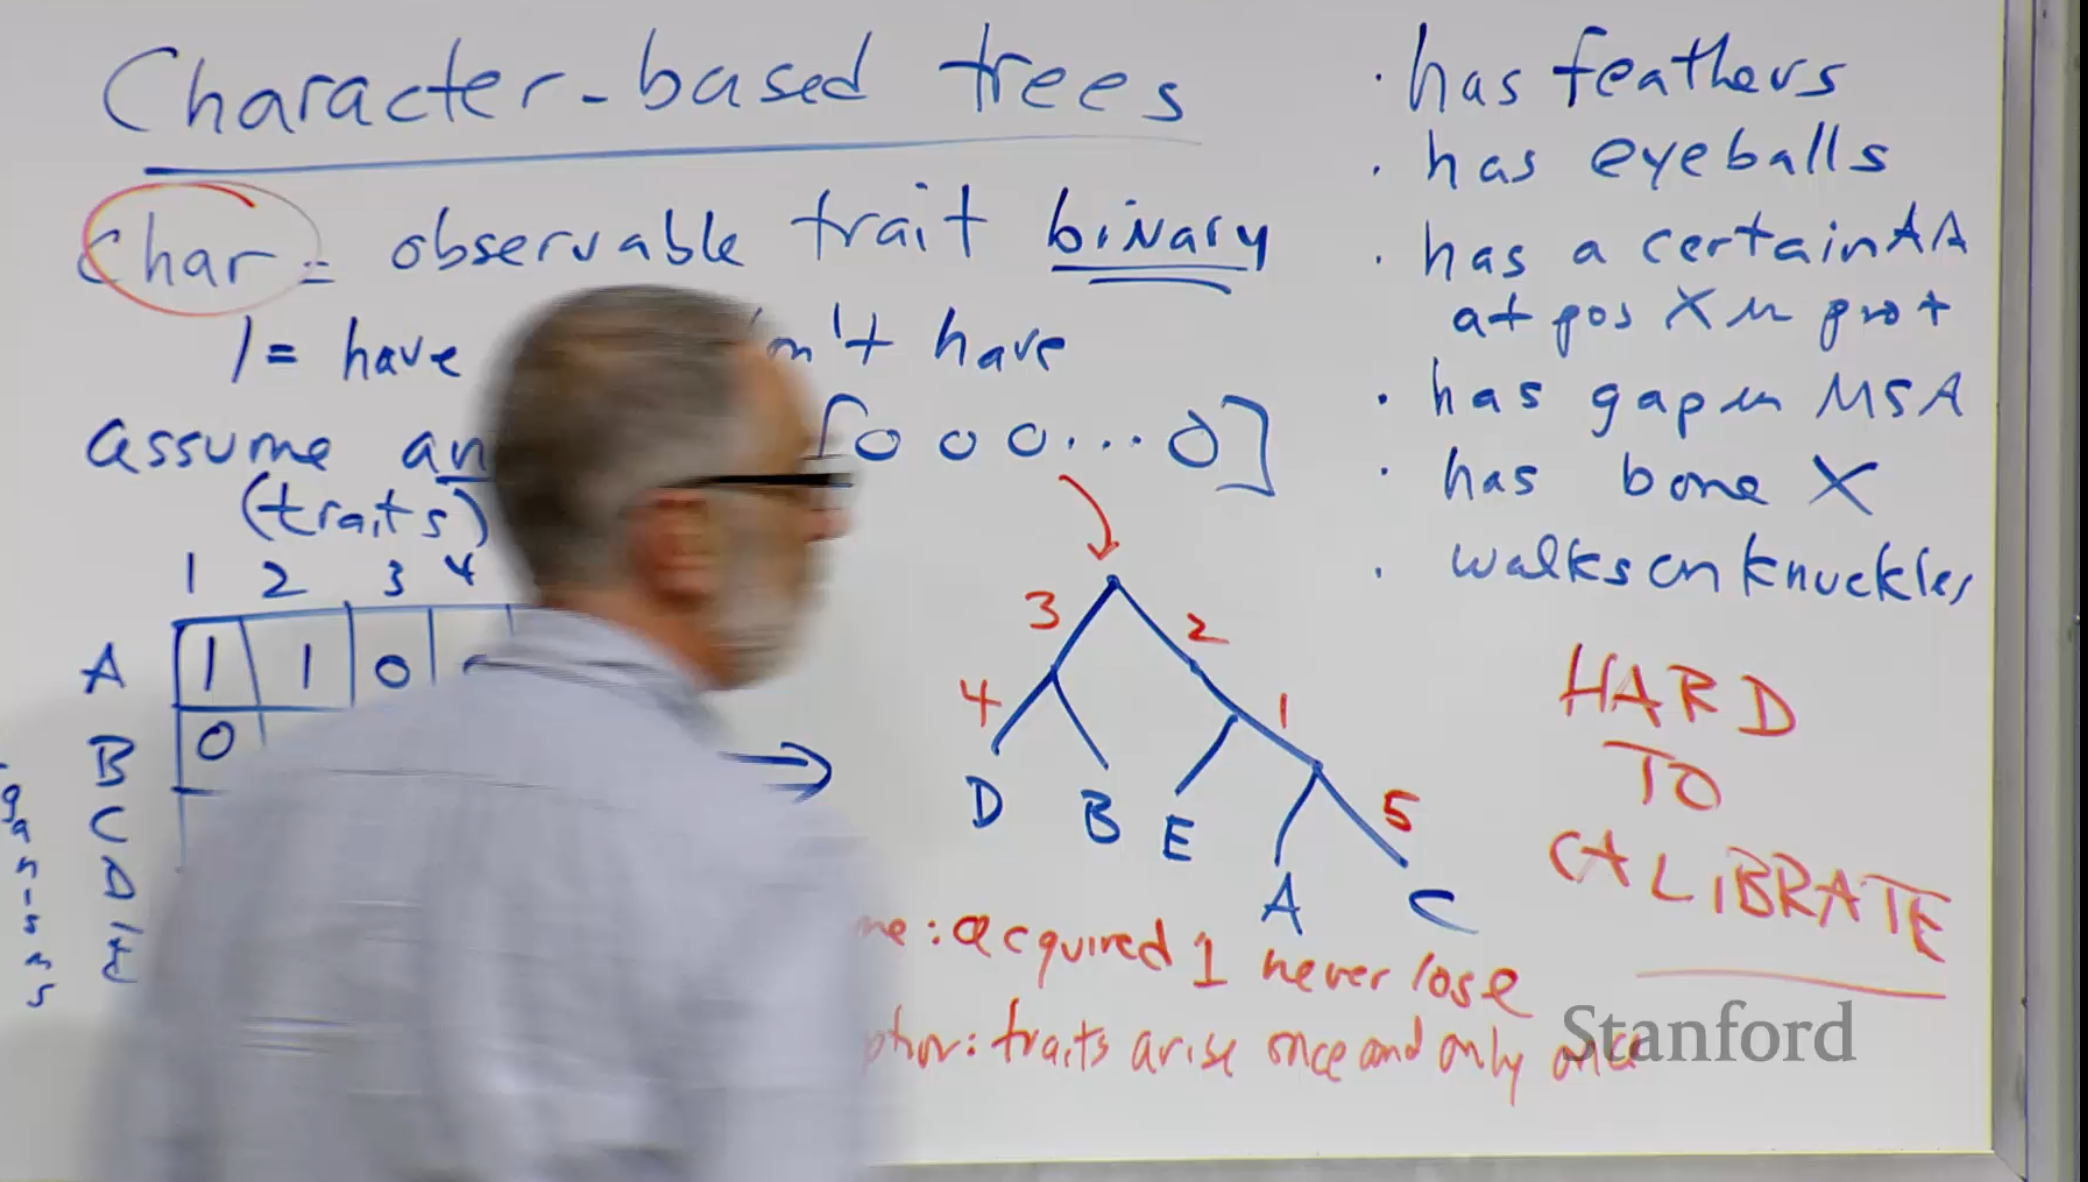 Character-based trees
char = observable trait binary
1 = have n't have
assume an [0 0 0 . . . 0]
(traits)
1 2 3 4
A 1 1 0
B 0
C
D
E
ganisms
3 2
4 1
5
D B E A C
me: acquired 1 never lose
ption: traits arise once and only once
· has feathers
· has eyeballs
· has a certain AA
at pos X in prot
· has gap in MSA
· has bone X
· walks on knuckles
HARD
TO
CALIBRATE
Stanford